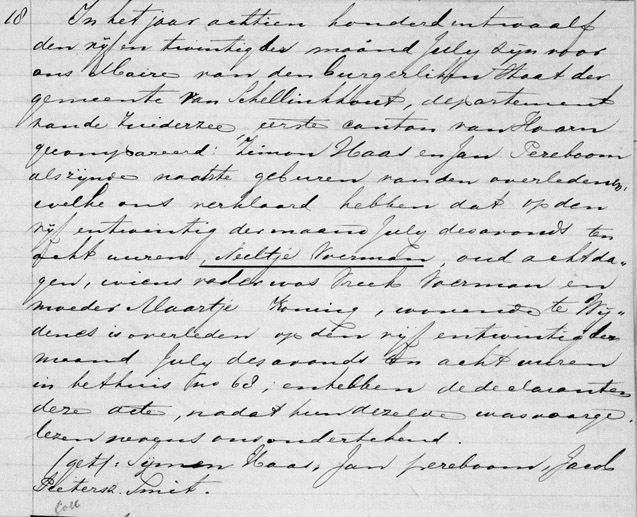 18 In het jaar achtien honderd en twaalf
den vijf en twintig der maand July zijn voor
ons Maire van den burgerlijken Staat der
gemeente van Schellinkhout, departement
vande Zuiderzee, eerste canton van Hoorn
gecompareerd: Zimon Haas en Jan Pereboom
alszijnde naaste geburen vanden overledene,
welke ons verklaard hebben dat op den
vijf en twintig der maand July desavonds ten
acht uuren, Neeltje Voerman, oud acht da"
gen, wiens vader was Freek Voerman en
moeder Maartje Koning, wonende te Wij"
denes is overleden op den vijf en twintig der
maand July desavonds ten acht uuren
in het huis no 68; en hebben de declaranten
deze acte, nadat hun dezelve was voorge
lezen nevens ons ondertekend.
(get): Sijmen Haas, Jan pereboom, Jacob
Pietersz. Smit.
Coll